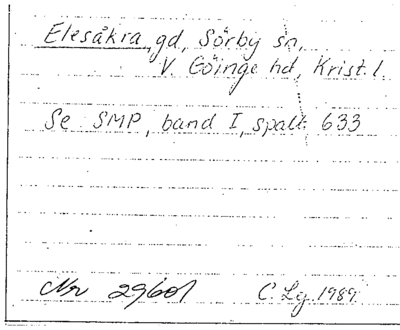 Elesåkra, gd, Sörby sn,
V. Göinge hd, Krist. l.
Se SMP, band I, spalt 633
Nr 29601 C. Lg. 1989.